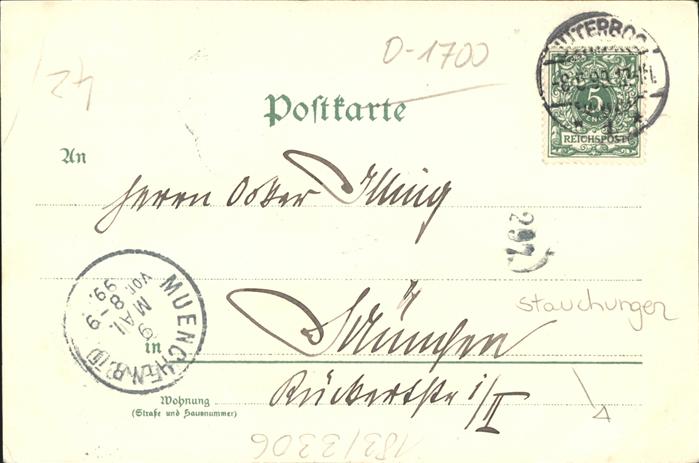 D-1700
42
JÜTERBOG
5
REICHSPOST
Postkarte
An
Herrn Oskar Illing
297
MUENCHEN.B.10
9
MAI
8-9
VOR.
99
Stauchungen
in München
Wohnung
(Straße und Hausnummer)
Rückertstr 1/II
183/3306